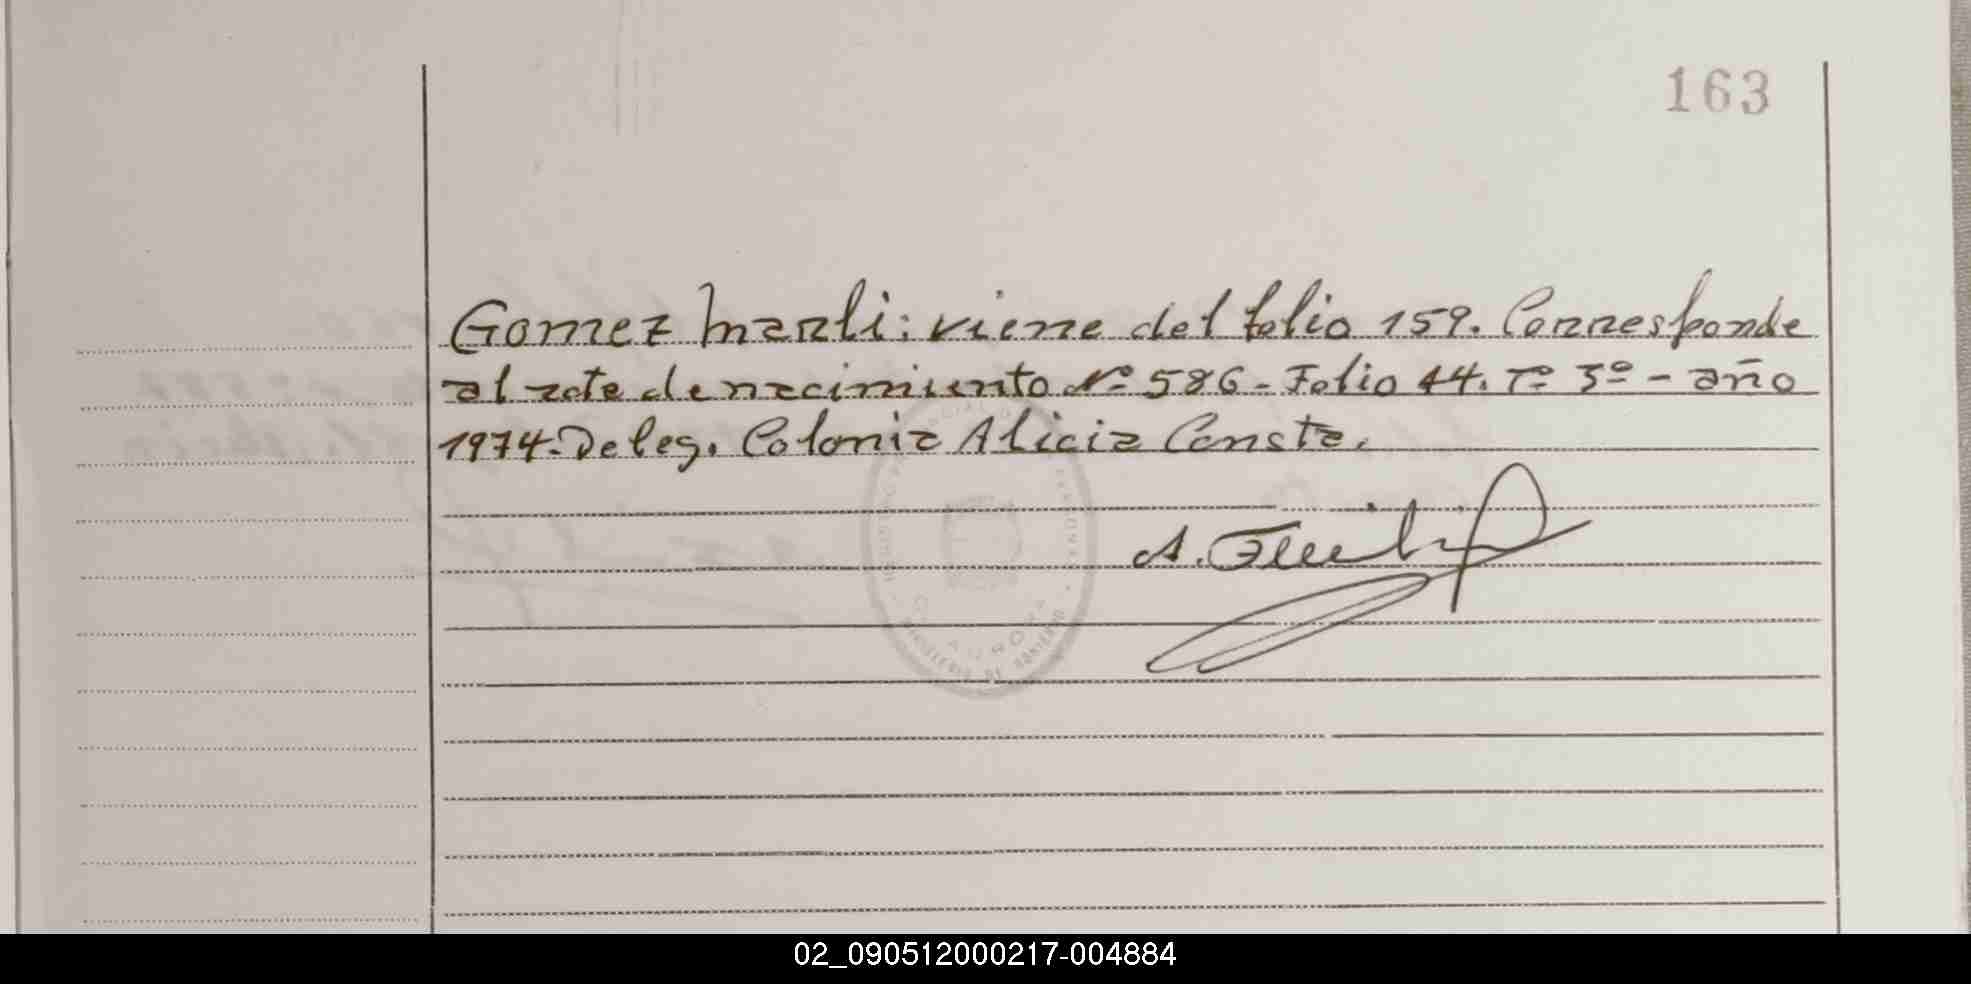 163
Gomez Marli: viene del folio 159. Corresponde
al acta de nacimiento Nº 586 - Folio 44. Tº 3º - año
1974. Deleg. Colonia Alicia Consta.
02_090512000217-004884